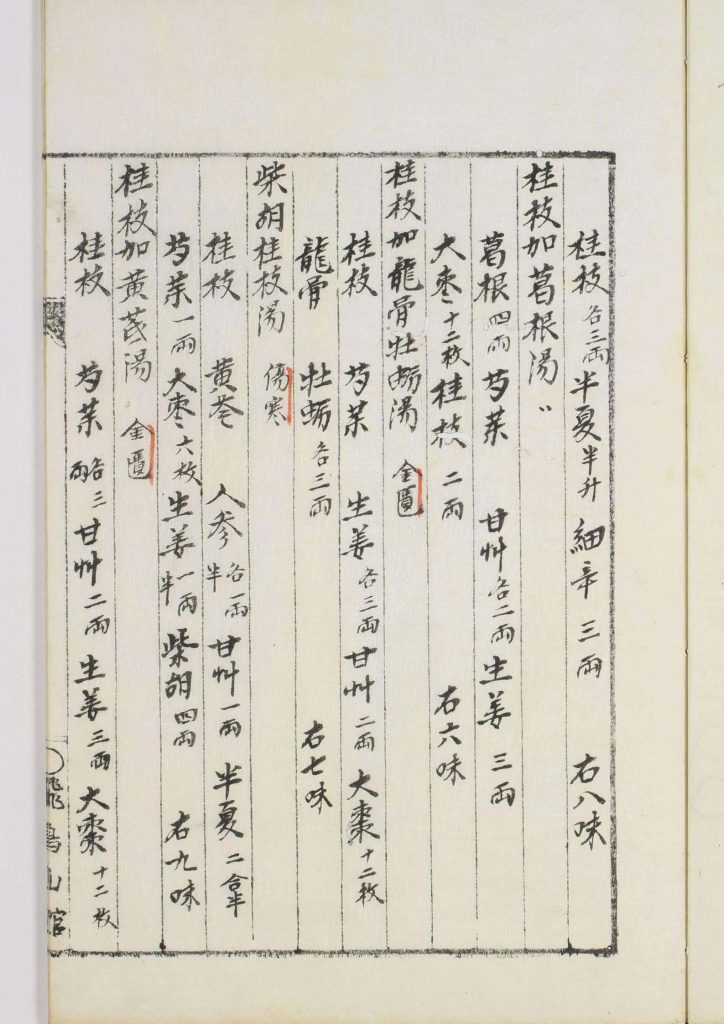 桂枝各三両半夏半升細辛三両右八味
桂枝加葛根湯〃
葛根四両芍薬甘艸各二両生姜三両
大枣十二枚桂枝二両右六味
桂枝加龍骨牡蛎湯金匱
桂枝芍薬生姜各三両甘艸二両大棗十二枚
龍骨牡蛎各三両右七味
柴胡桂枝湯傷寒
桂枝黄芩人参各一両半甘艸一両半夏二合半
芍薬一両大枣六枚生姜一両半柴胡四両右九味
桂枝加黄芪湯金匱
桂枝芍薬各三両甘艸二両生姜三両大棗十二枚
鳥山館